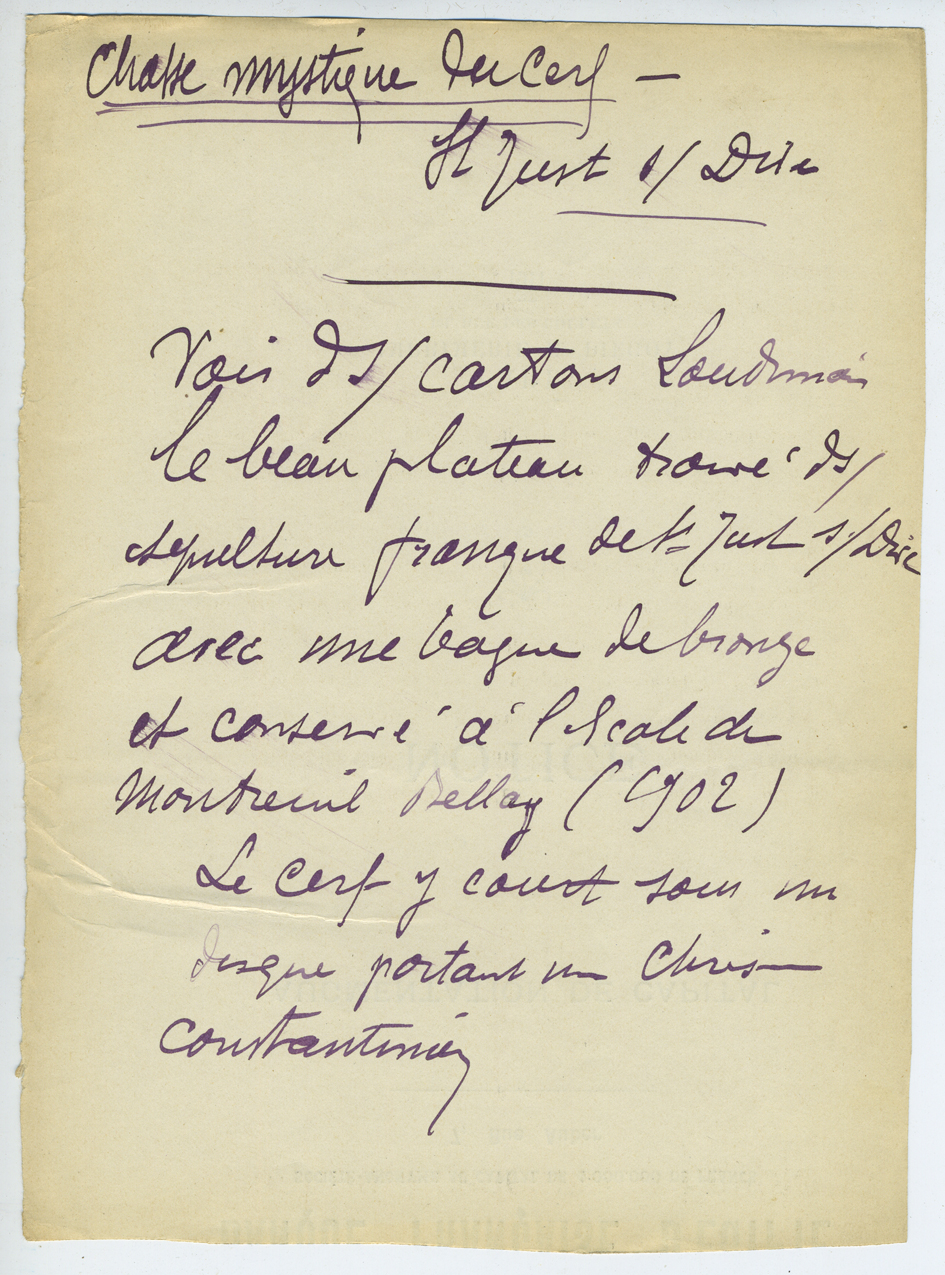 Chasse mystique du Cerf —
St Just s/ Dive
Voir ds/ cartons Loudunais
le beau plateau trouvé ds/
sépulture franque de St Just s/ Dive
avec une bague de bronze
et conservé à l'Ecole de
Montreuil Bellay (1902)
Le Cerf y court sous un
disque portant un Chrisme
constantinien